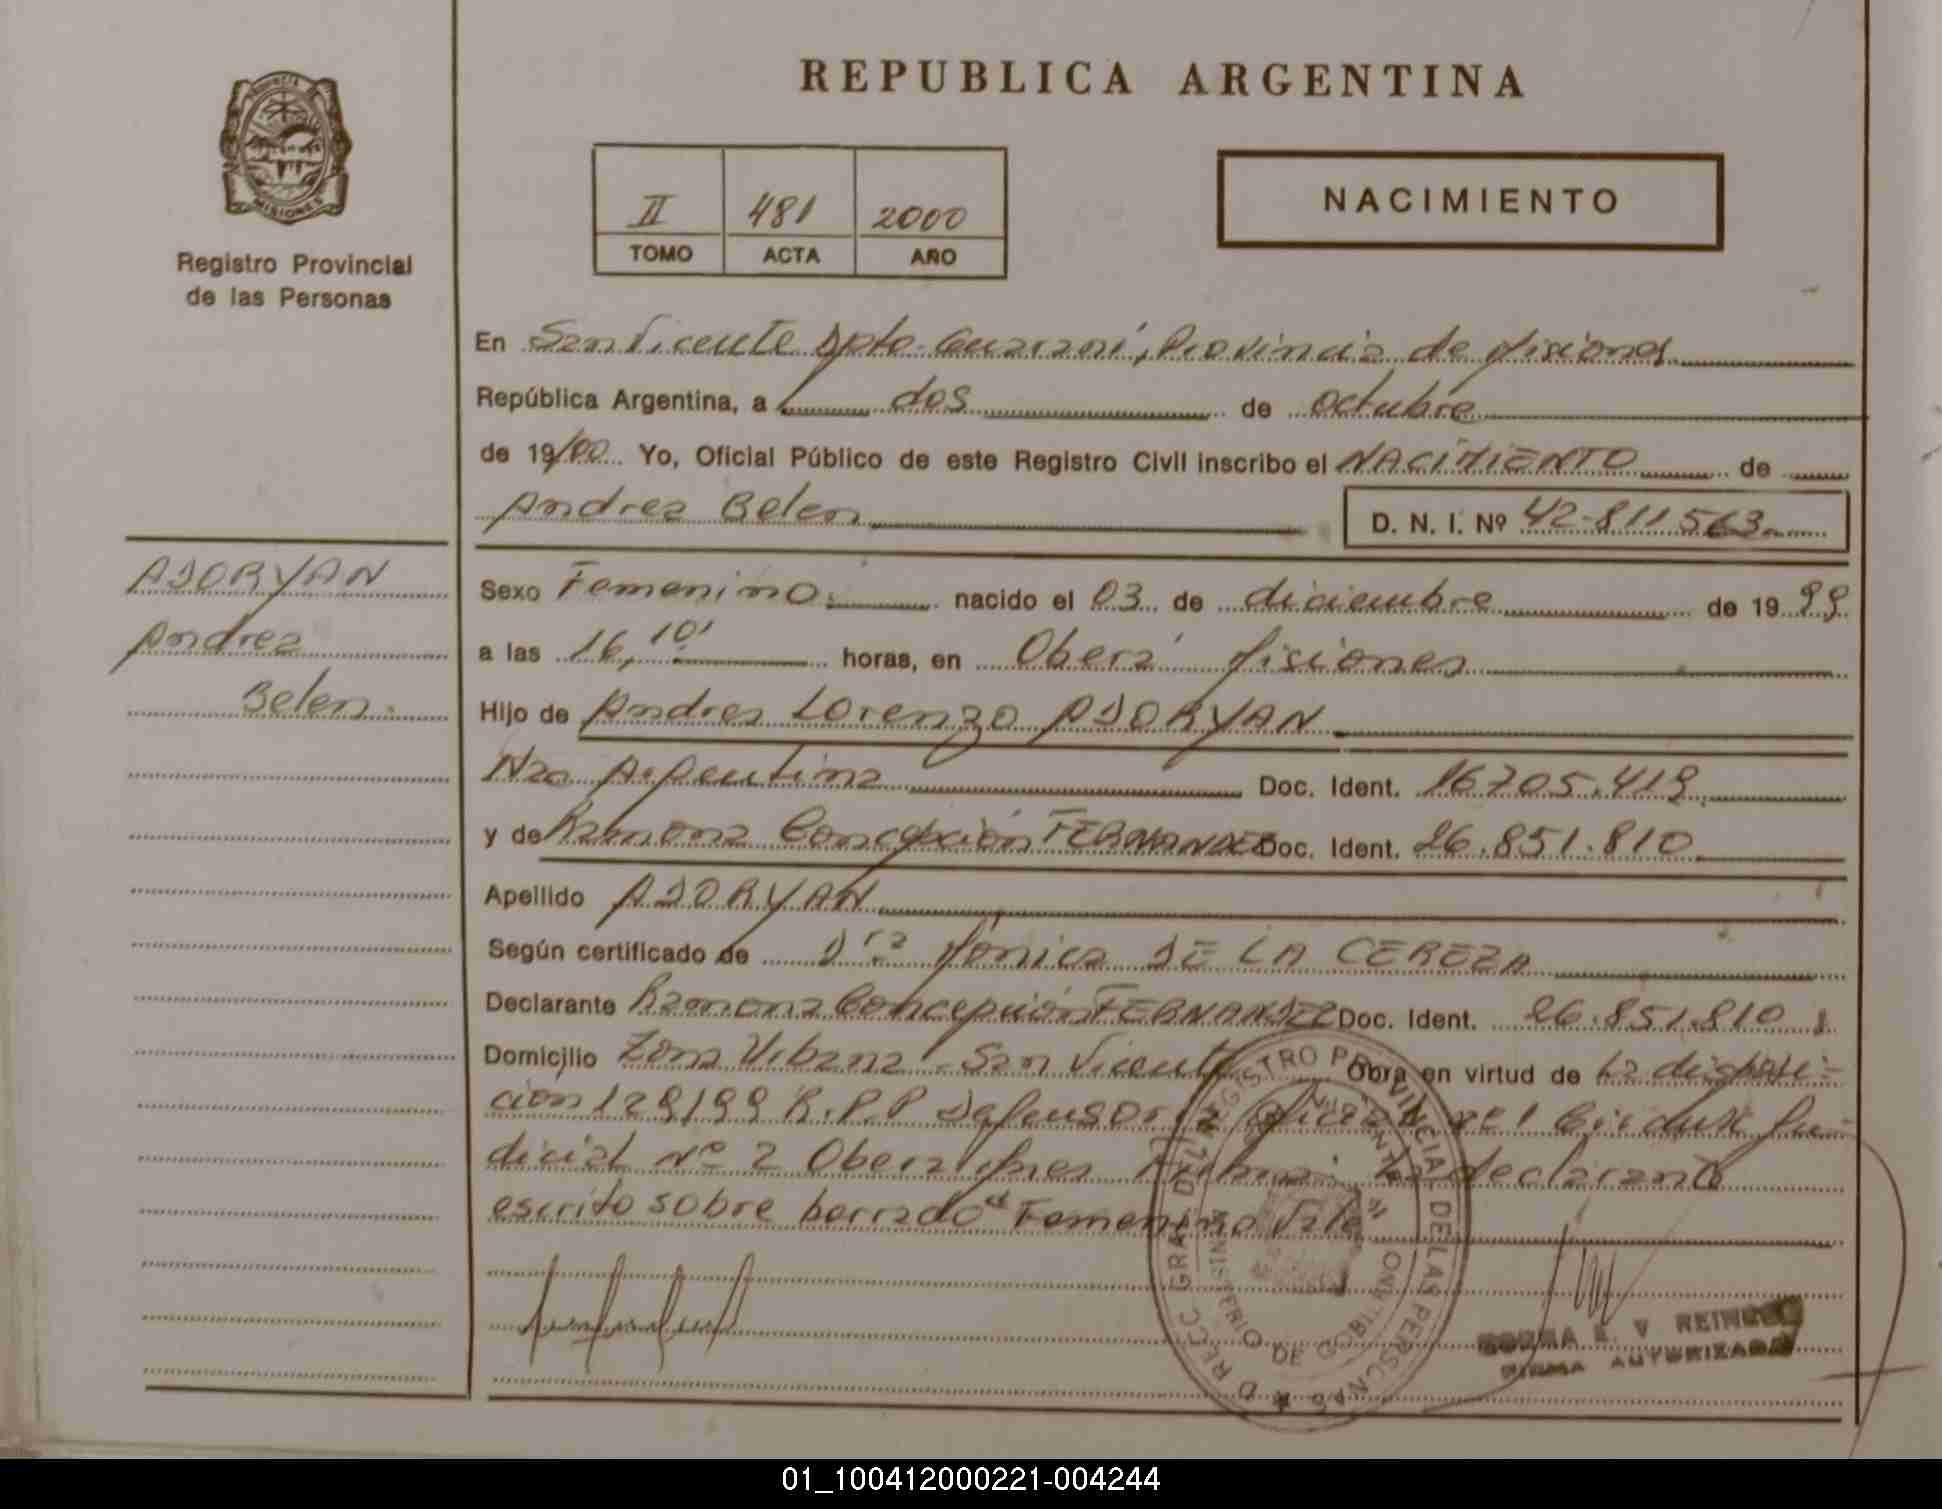 REPUBLICA ARGENTINA
PROVINCIA
MISIONES
Registro Provincial
de las Personas
II 481 2000
TOMO ACTA AÑO
NACIMIENTO
En San Vicente Dpto. Guaraní, Provincia de Misiones
República Argentina, a dos de octubre
de 19/00 Yo, Oficial Público de este Registro Civil inscribo el NACIMIENTO de
Andrea Belen D. N. I. Nº 42-811563
ADORYAN
Andrea
Belen.
Sexo Femenino. nacido el 03 de diciembre de 19 99
a las 16,10' horas, en Oberá Misiones
Hijo de Andres Lorenzo ADORYAN
Nac Argentina Doc. Ident. 16705.419
y de Ramona Concepción FERNANDEZ Doc. Ident. 26.851.810
Apellido ADORYAN
Según certificado de Dra Mónica DE LA CEREZA
Declarante Ramona Concepción FERNANDEZ Doc. Ident. 26.851.810
Domicilio Zona Urbana - San Vicente Obra en virtud de La disposi-
ción 129/99 R.P.P Defensoría Oficial nº 1 Circunc Ju-
dicial Nº 2 Oberá Mnes La declarante
escrito sobre borrado "Femenino" Vale
DIRECC GRAL DEL REGISTRO PROVINCIAL DE LAS PERSONAS
MINISTERIO DE GOBIERNO
REINO
FIRMA AUTORIZADA
01_100412000221-004244